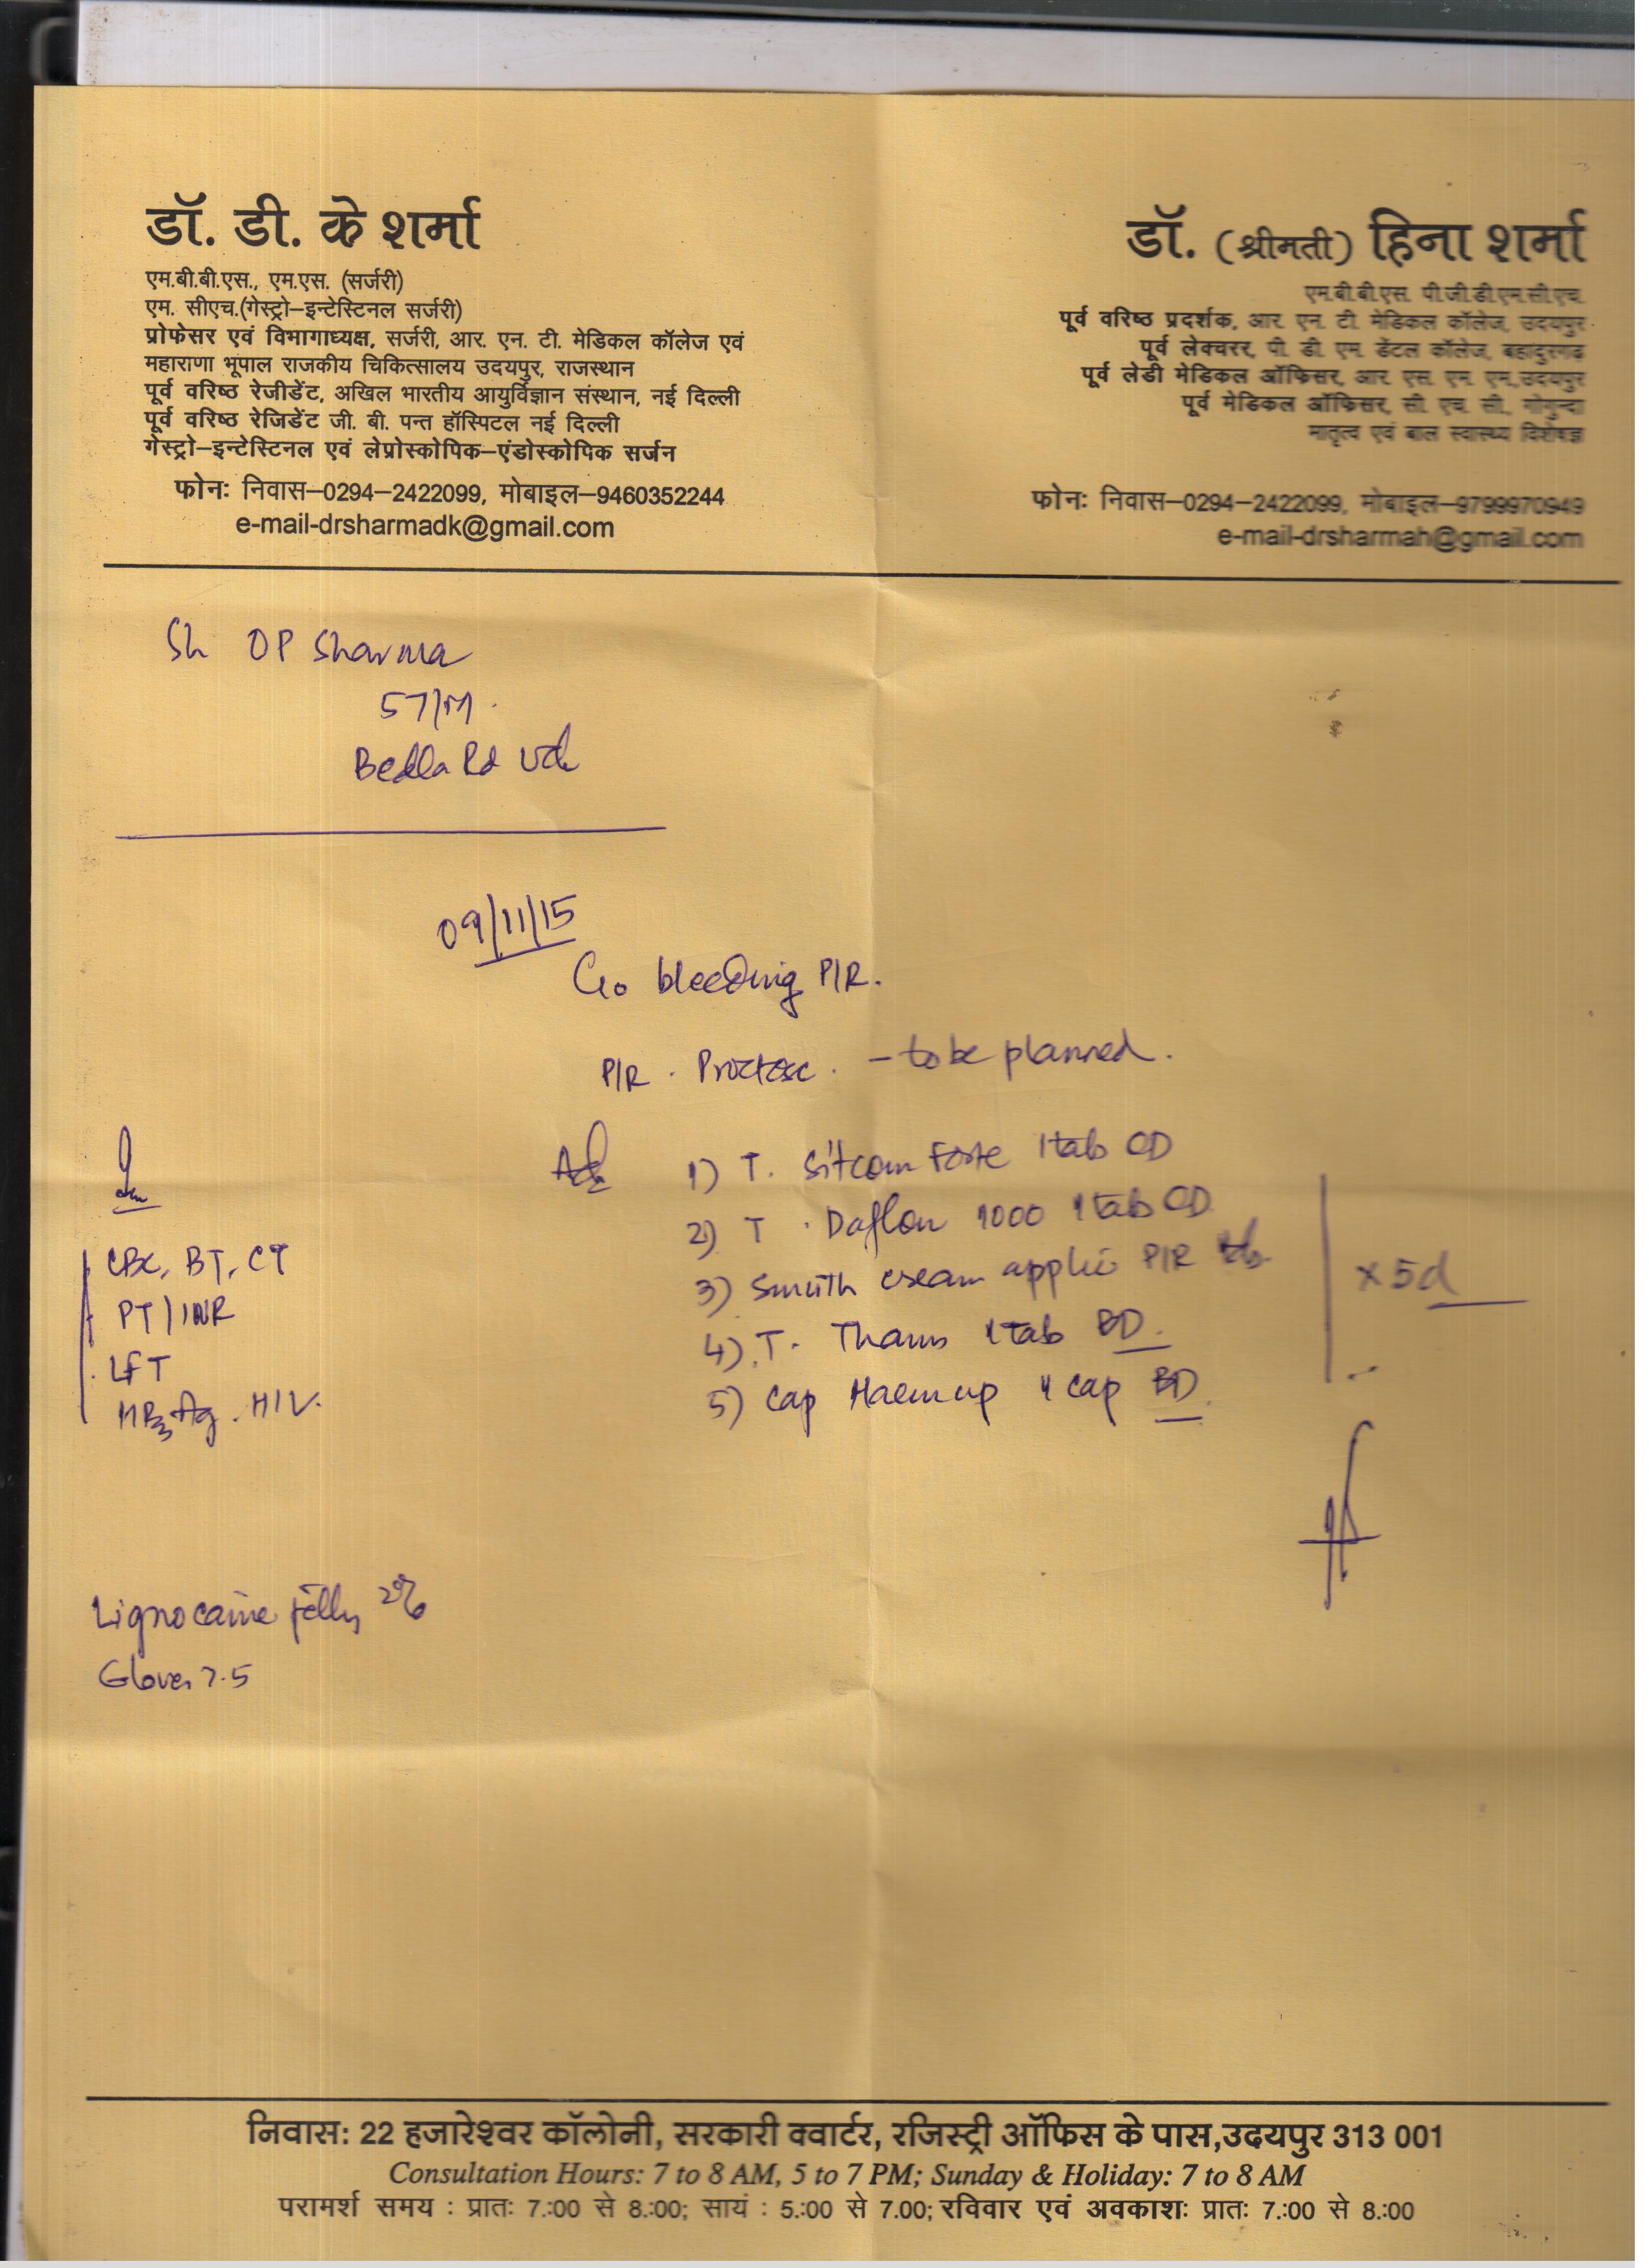 डॉ. डी. के शर्मा
एम.बी.बी.एस., एम.एस. (सर्जरी)
एम. सीएच.(गेस्ट्रो–इन्टेस्टिनल सर्जरी)
प्रोफेसर एवं विभागाध्यक्ष, सर्जरी, आर. एन. टी. मेडिकल कॉलेज एवं
महाराणा भूपाल राजकीय चिकित्सालय उदयपुर, राजस्थान
पूर्व वरिष्ठ रेजीडेंट, अखिल भारतीय आयुर्विज्ञान संस्थान, नई दिल्ली
पूर्व वरिष्ठ रेजिडेंट जी. बी. पन्त हॉस्पिटल नई दिल्ली
गेस्ट्रो–इन्टेस्टिनल एवं लेप्रोस्कोपिक–एंडोस्कोपिक सर्जन
फोनः निवास–0294–2422099, मोबाइल–9460352244
e-mail-drsharmadk@gmail.com
डॉ. (श्रीमती) हिना शर्मा
एम.बी.बी.एस. पी.जी.डी.एम.सी.एच.
पूर्व वरिष्ठ प्रदर्शक, आर. एन. टी. मेडिकल कॉलेज, उदयपुर
पूर्व लेक्चरर, पी. डी. एम. डेंटल कॉलेज, बहादुरगढ़
पूर्व लेडी मेडिकल ऑफिसर, आर. एस. एम. एम.,उदयपुर
पूर्व मेडिकल ऑफिसर, सी. एच. सी., गोगुन्दा
मातृत्व एवं बाल स्वास्थ्य विशेषज्ञ
फोनः निवास–0294–2422099, मोबाइल–9799970949
e-mail-drsharmah@gmail.com
Sh OP Sharma
57/M.
Bedla Rd Ud
09/11/15
C/o bleeding P/R.
P/R . Proctosc . – to be planned.
Adv
1) T. Sitcom Forte 1tab OD
2) T. Daflon 1000 1tab OD
3) Smuth cream applic P/R
4) T. 1tab BD.
5) Cap Haemup 1 cap BD.
x 5d
CBC, BT, CT
PT/INR
LFT
HBsAg. HIV.
Lignocaine jelly 2%
Gloves 7.5
निवासः 22 हजारेश्वर कॉलोनी, सरकारी क्वार्टर, रजिस्ट्री ऑफिस के पास,उदयपुर 313 001
Consultation Hours: 7 to 8 AM, 5 to 7 PM; Sunday & Holiday: 7 to 8 AM
परामर्श समय : प्रातः 7.:00 से 8.:00; सायं : 5.:00 से 7.00; रविवार एवं अवकाशः प्रातः 7.:00 से 8.:00